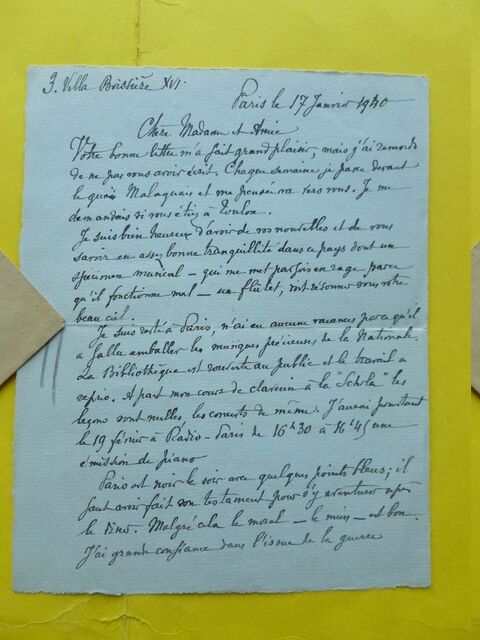 3. Villa Boissière XVI.
Paris le 17 Janvier 1940
Chère Madame et Amie
Votre bonne lettre m'a fait grand plaisir, mais j'ai remords
de ne pas vous avoir écrit. Chaque semaine je passe devant
le quai Malaquais et ma pensée va vers vous. Je me
demandais si vous étiez à Toulon.
Je suis bien heureux d'avoir de vos nouvelles et de vous
savoir en assez bonne tranquillité dans ce pays dont un
spécimen musical — qui me met parfois en rage parce
qu'il fonctionne mal — un flûtet, doit résonner sous votre
beau ciel.
Je suis resté à Paris, n'ai eu aucune vacances parce qu'il
a fallu emballer les musiques précieuses de la Nationale.
La Bibliothèque est rouverte au public et le travail a
repris. A part mon cours de clavecin à la "Schola" les
leçons sont nulles, les concerts de même. J'aurai pourtant
le 19 février à Radio-Paris de 16h30 à 16h45 une
émission de piano
Paris est noir le soir avec quelques points bleus; il
faut avoir fait son testament pour s'y aventurer après
le dîner. Malgré cela le moral — le mien — est bon.
J'ai grande confiance dans l'issue de la guerre